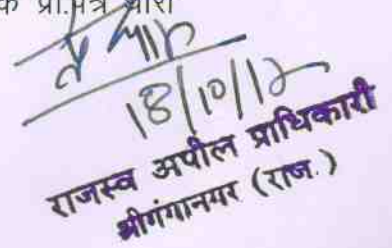 क प्रा.पत्र धारा
18/10/12
राजस्व अपील प्राधिकारी
श्रीगंगानगर (राज.)